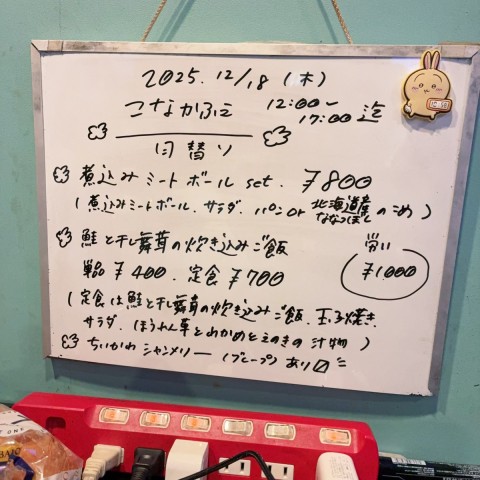 2025.12/18 (木)
こなかふぇ 12:00〜
17:00 迄
日替り
煮込みミートボール set. ¥800
(煮込みミートボール、サラダ、パン or 北海道産ななつぼしのごはん)
鮭と干し舞茸の炊き込みご飯
単品 ¥400、定食 ¥700
¥1000
(定食は鮭と干し舞茸の炊き込みご飯、玉子焼き、
サラダ、ほうれん草とわかめとえのきの汁物)
ちいかわ シャンメリー (グレープ) あり〼